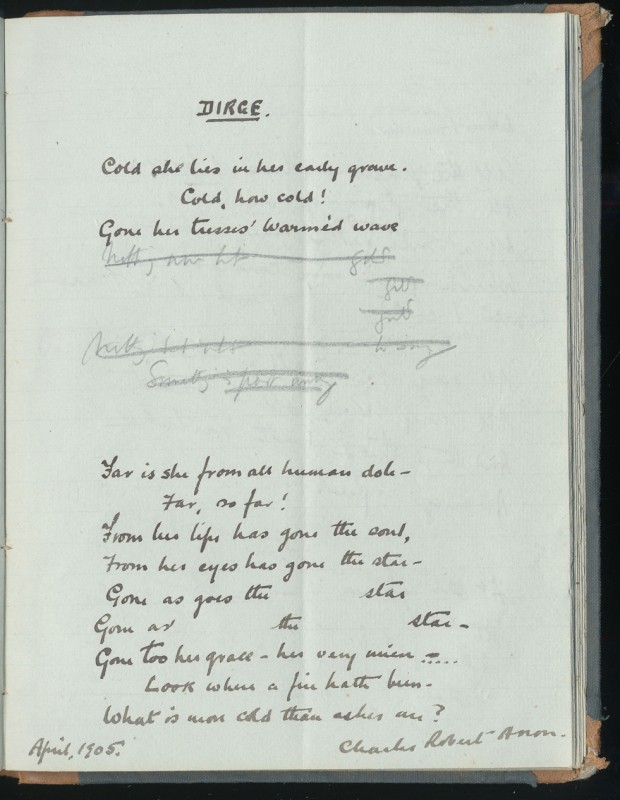 DIRGE.
Cold she lies in her early grave.
Cold, how cold!
Gone her tresses' warmèd wave
gold
Far is she from all human dole —
Far, so far!
From her lips has gone the soul,
From her eyes has gone the star —
Gone as goes the star
Gone as the star —
Gone too her grace — her very mien
Look where a fire hath been —
What is more cold than ashes are?
April, 1905.
Charles Robert Anon.